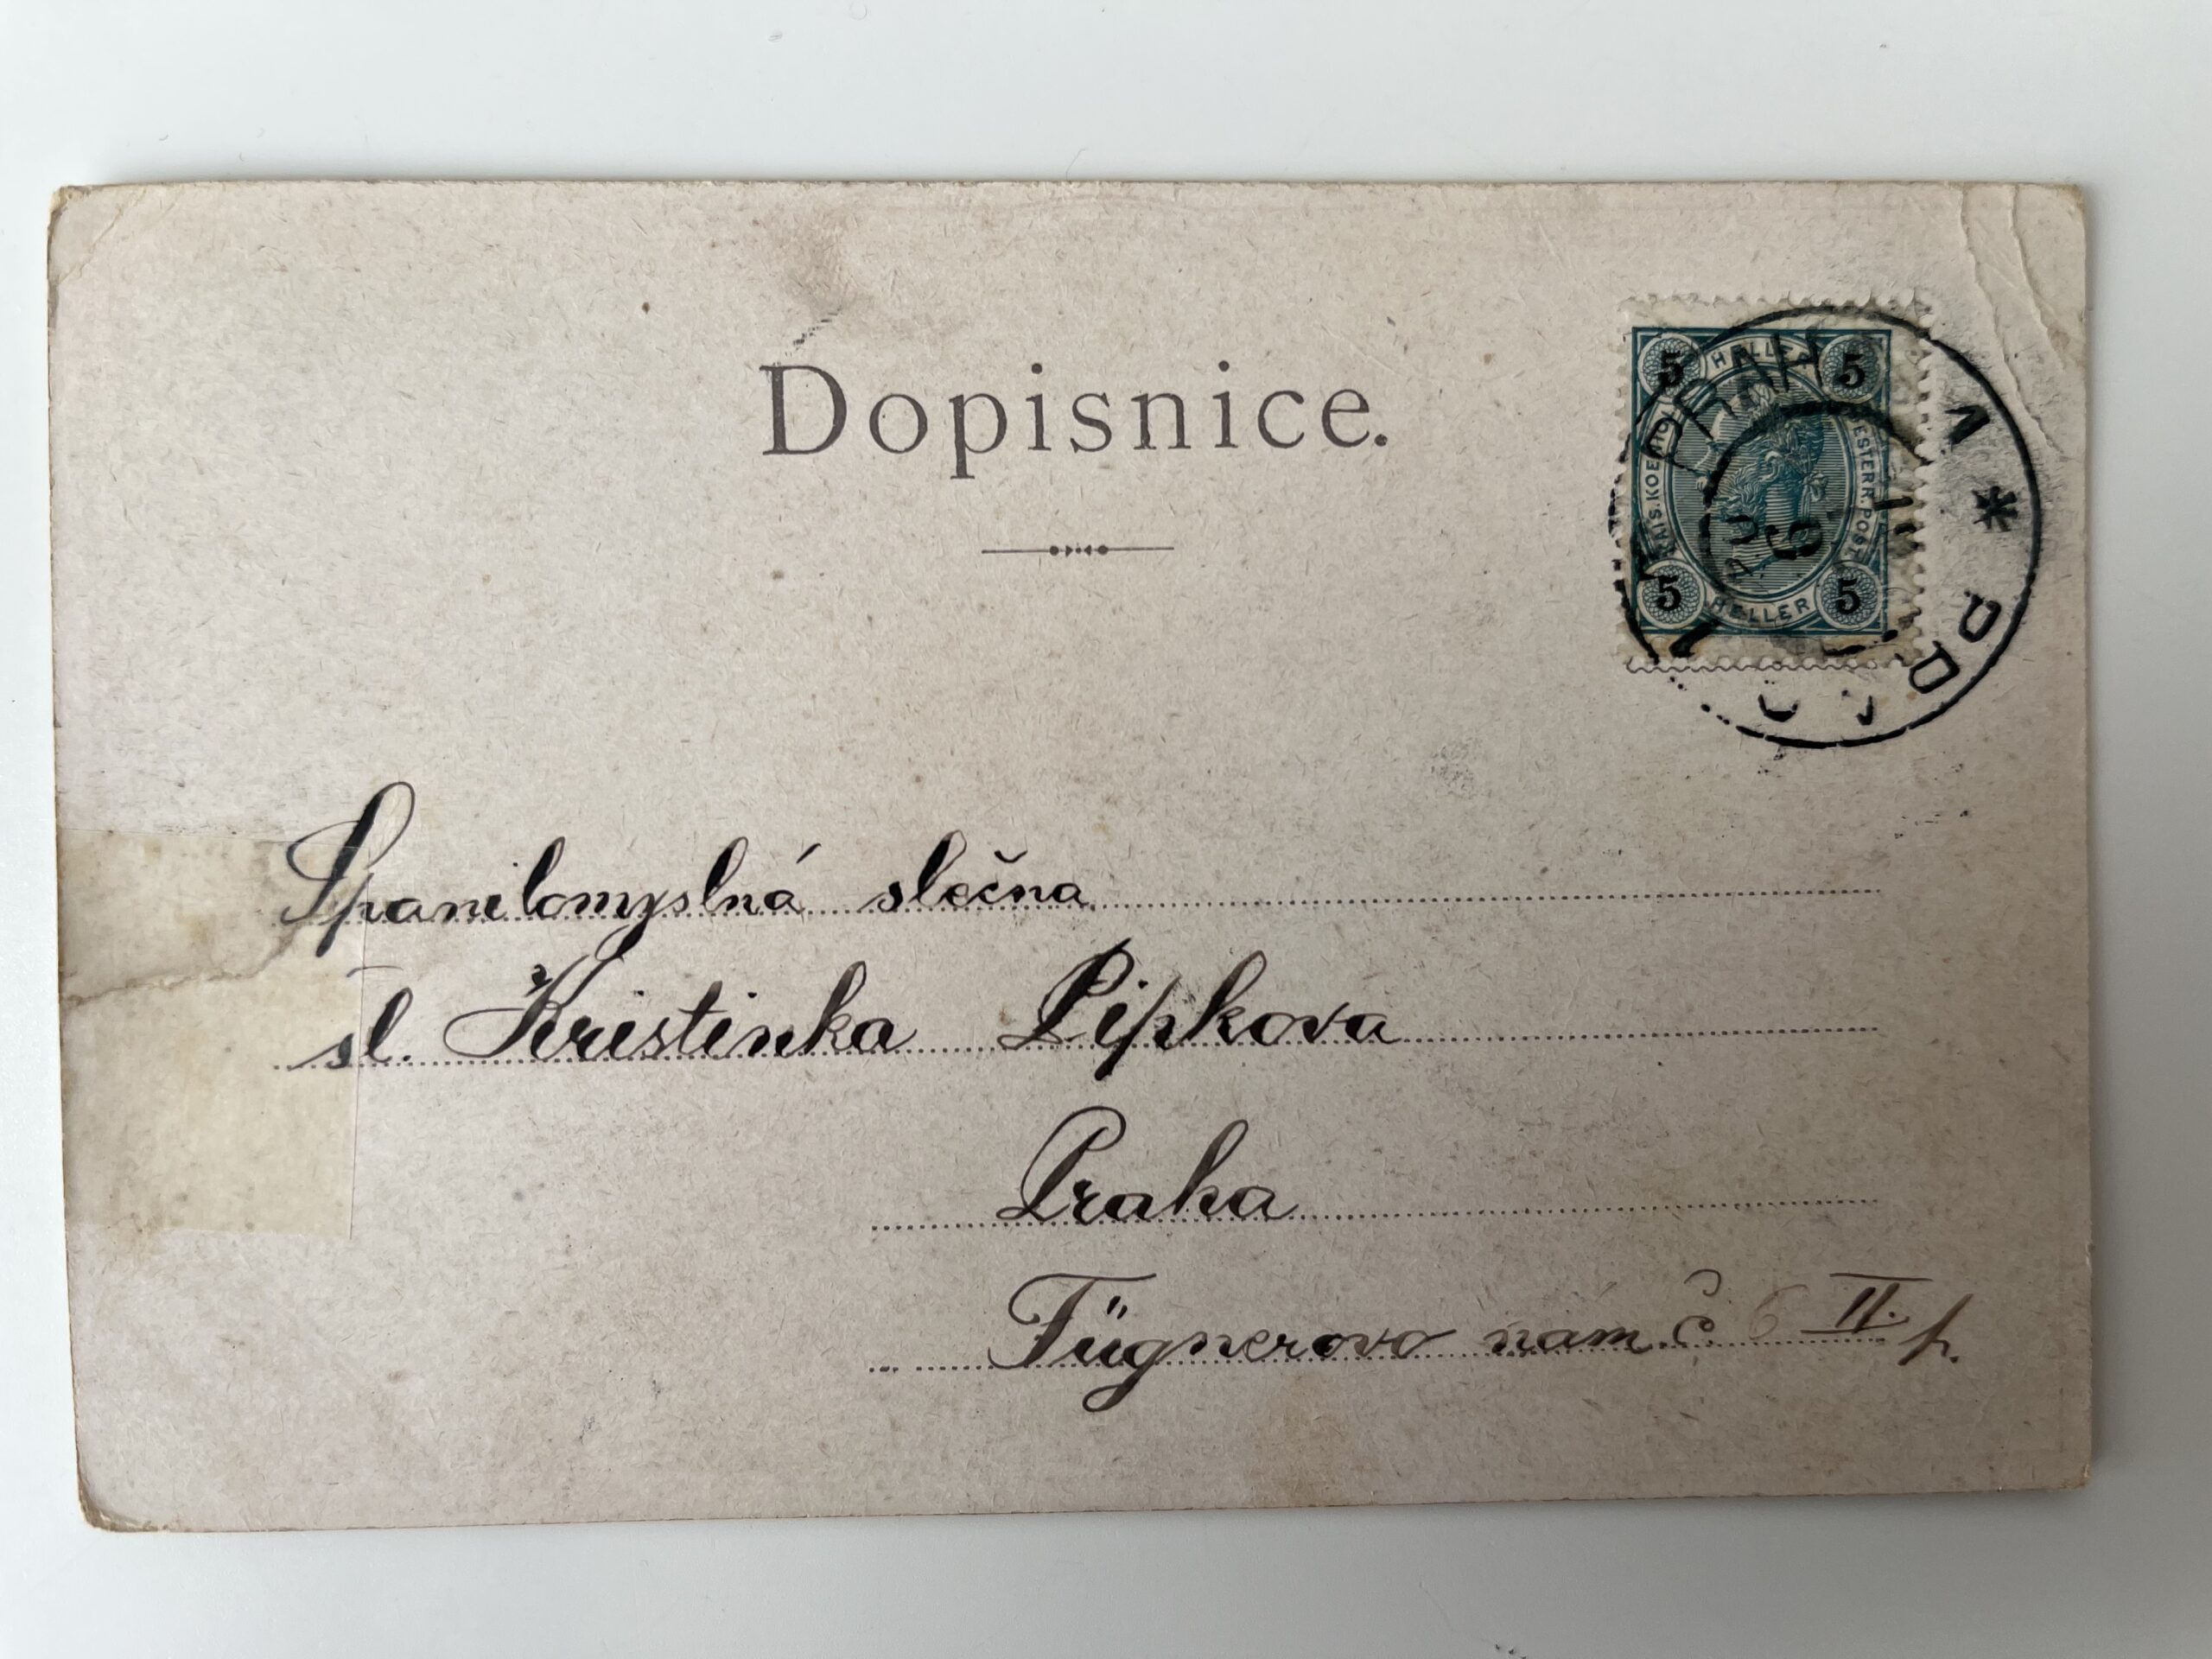 Dopisnice.
5 HELLER 5
KAIS. KOENIGL. OESTERR. POST.
5 HELLER 5
Spanilomyslná slečna
sl. Kristinka Pipkova
Praha
Fügnerovo nám. č. 6 II. p.